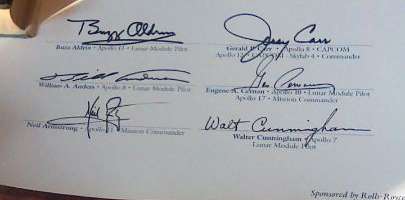 Buzz Aldrin
Buzz Aldrin • Apollo 11 • Lunar Module Pilot
Jerry Carr
Gerald P. Carr • Apollo 8 • CAPCOM
Apollo 12 • CAPCOM • Skylab 4 • Commander
William A. Anders • Apollo 8 • Lunar Module Pilot
Gene Cernan
Eugene A. Cernan • Apollo 10 • Lunar Module Pilot
Apollo 17 • Mission Commander
Neil Armstrong • Apollo 11 • Mission Commander
Walt Cunningham
Walter Cunningham • Apollo 7
Lunar Module Pilot
Sponsored by Rolls-Royce